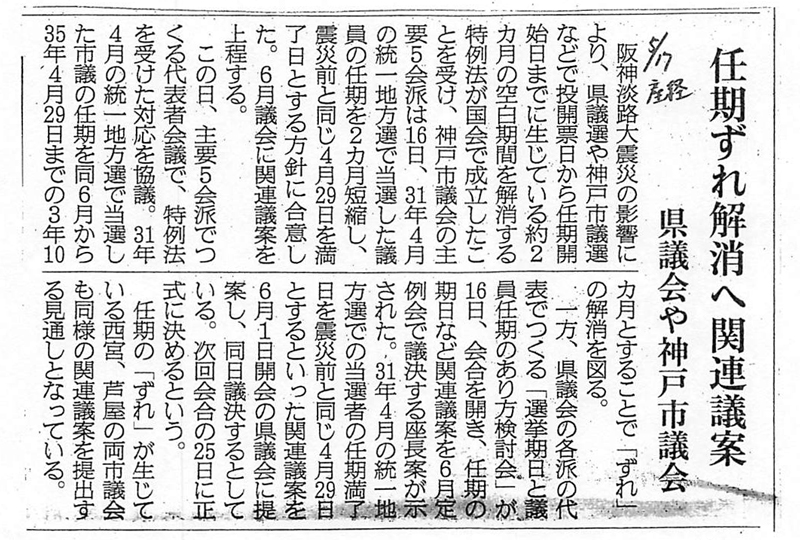 任期ずれ解消へ関連議案
県議会や神戸市議会
5/17
産経
阪神淡路大震災の影響に
より、県議選や神戸市議選
などで投開票日から任期開
始日までに生じている約2
カ月の空白期間を解消する
特例法が国会で成立したこ
とを受け、神戸市議会の主
要5会派は16日、31年4月
の統一地方選で当選した議
員の任期を2カ月短縮し、
震災前と同じ4月29日を満
了日とする方針に合意し
た。6月議会に関連議案を
上程する。
この日、主要5会派でつ
くる代表者会議で、特例法
を受けた対応を協議。31年
4月の統一地方選で当選し
た市議の任期を同6月から
35年4月29日までの3年10
カ月とすることで「ずれ」
の解消を図る。
一方、県議会の各派の代
表でつくる「選挙期日と議
員任期のあり方検討会」が
16日、会合を開き、任期の
期日など関連議案を6月定
例会で議決する座長案が示
された。31年4月の統一地
方選での当選者の任期満了
日を震災前と同じ4月29日
とするといった関連議案を
6月1日開会の県議会に提
案し、同日議決するとして
いる。次回会合の25日に正
式に決めるという。
任期の「ずれ」が生じて
いる西宮、芦屋の両市議会
も同様の関連議案を提出す
る見通しとなっている。